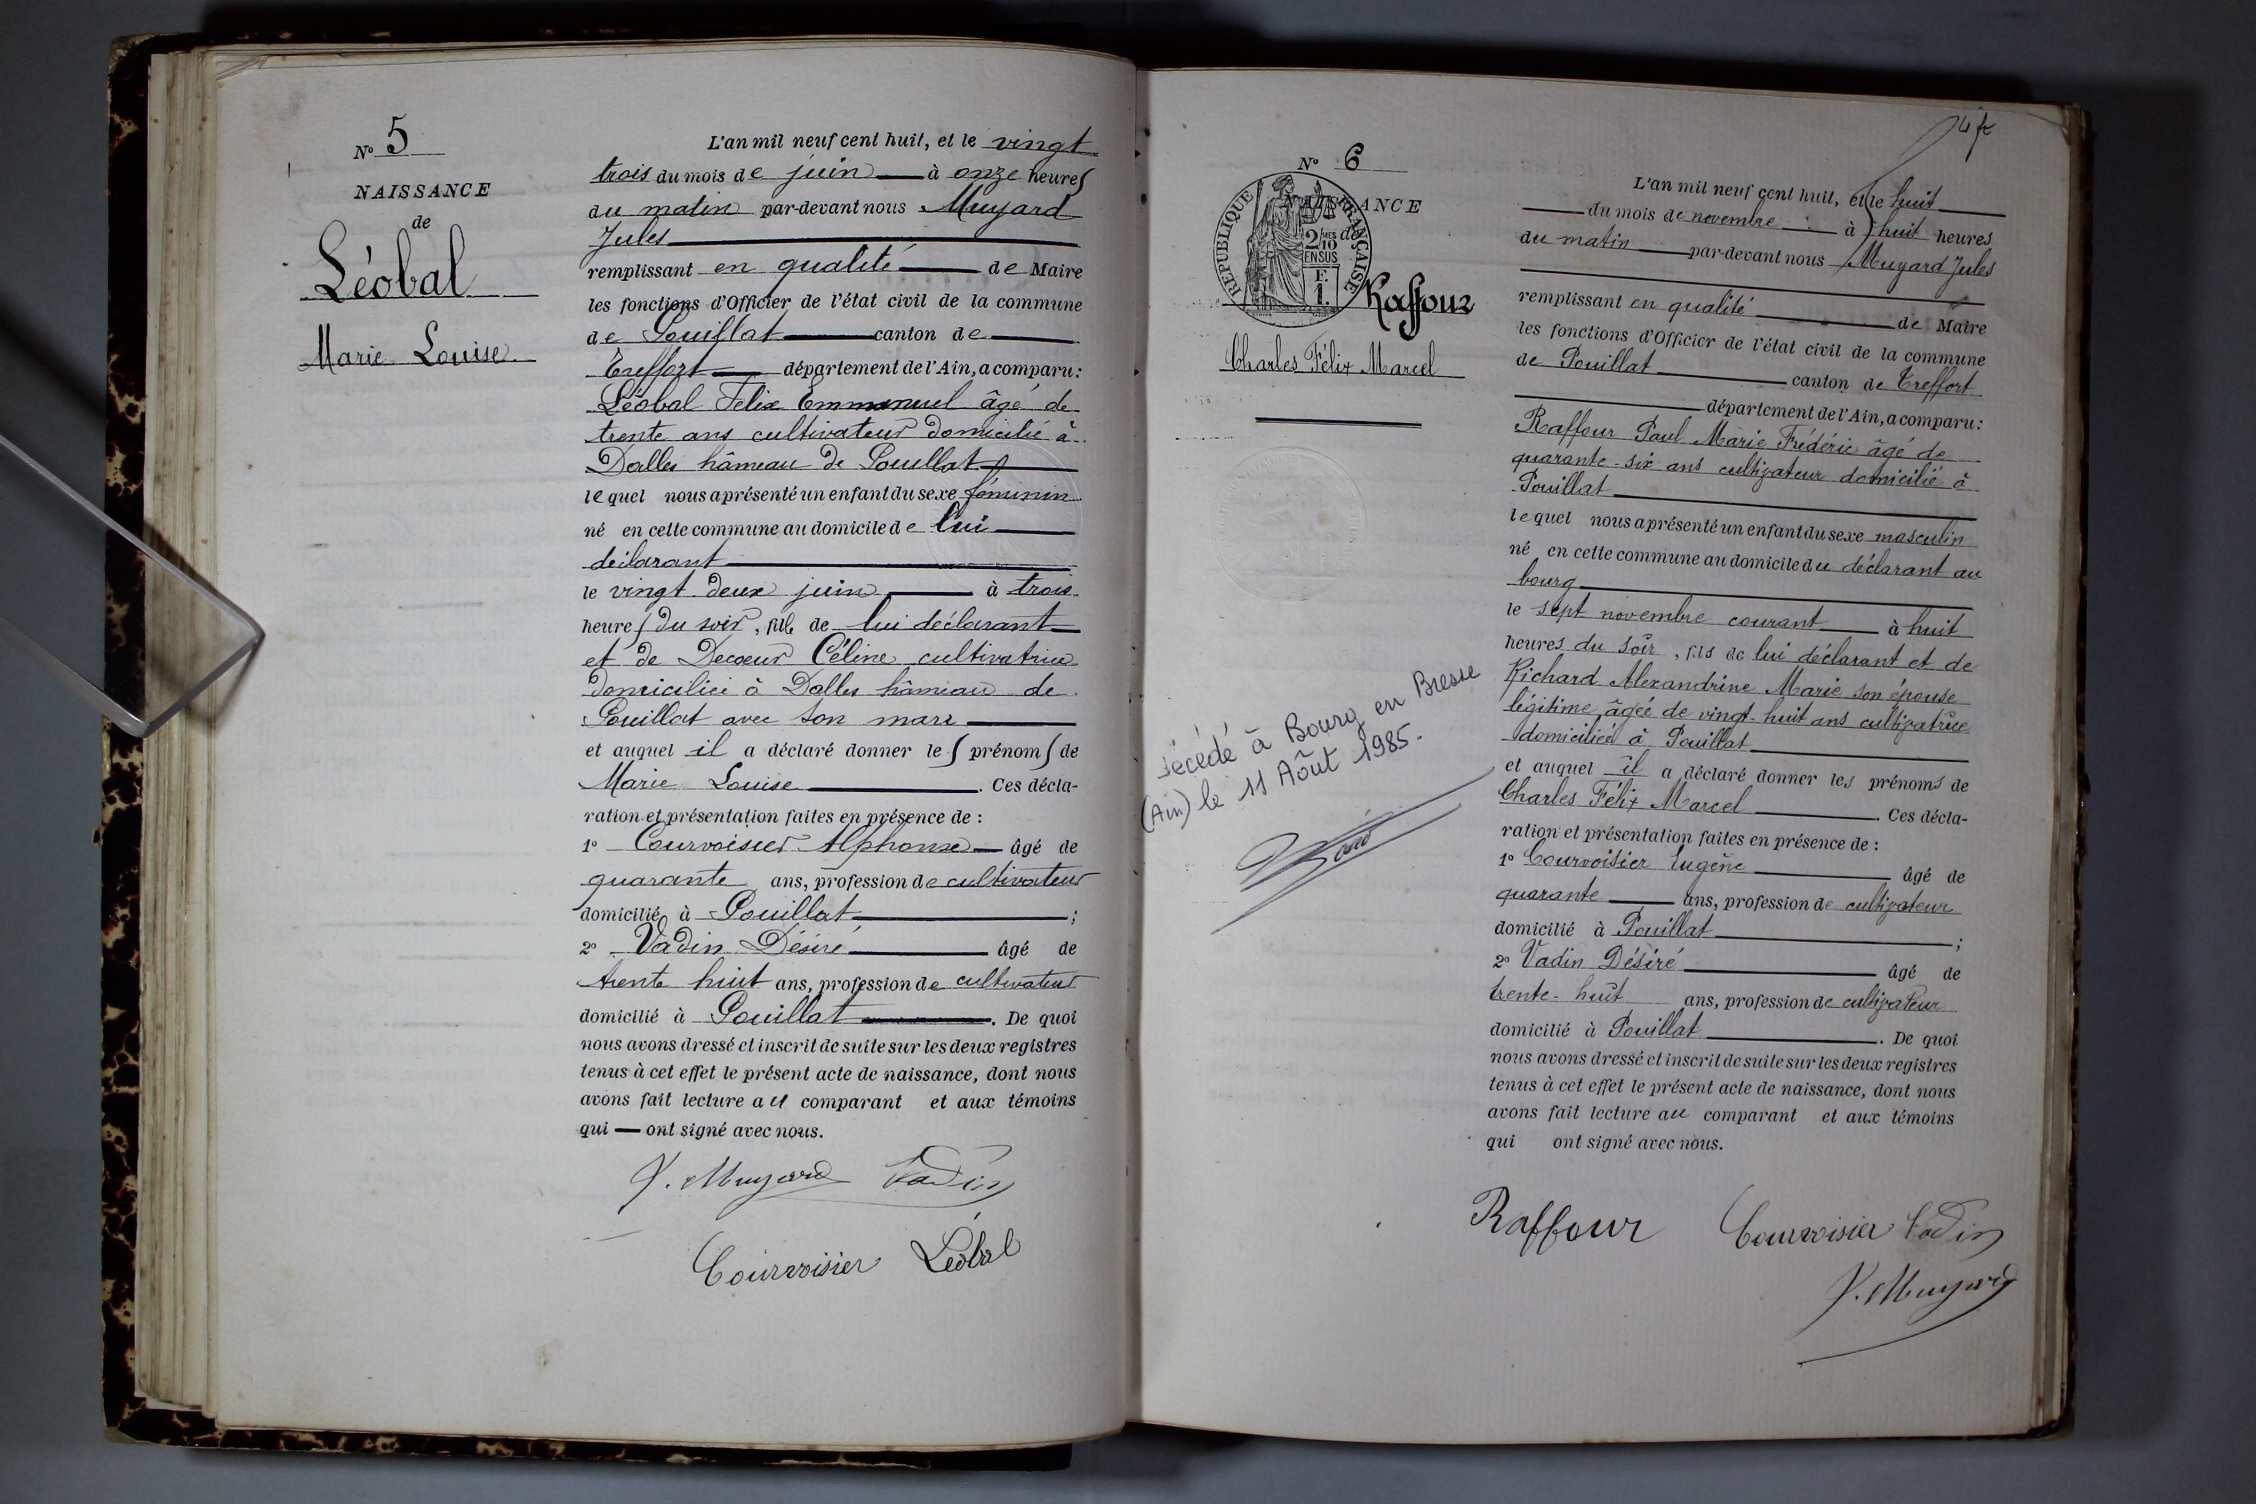 N° 5
NAISSANCE
de
Léobal
Marie Louise
L'an mil neuf cent huit, et le vingt
trois du mois de juin à onze heures
du matin par-devant nous Muyard
Jules
remplissant en qualité de Maire
les fonctions d'Officier de l'état civil de la commune
de Pouillat canton de
Treffort département de l'Ain, a comparu :
Léobal Felix Emmanuel âgé de
trente ans cultivateur domicilié à
Dalles hâmeau de Pouillat
lequel nous a présenté un enfant du sexe féminin
né en cette commune au domicile de lui
déclarant
le vingt deux juin à trois
heures du soir, fille de lui déclarant
et de Decoeur Céline cultivatrice
domiciliée à Dalles hâmeau de
Pouillat avec son mari
et auquel il a déclaré donner les prénoms de
Marie Louise. Ces décla-
ration et présentation faites en présence de :
1° Courvoisier Alphonse âgé de
quarante ans, profession de cultivateur
domicilié à Pouillat ;
2° Vadin Désiré âgé de
trente huit ans, profession de cultivateur
domicilié à Pouillat. De quoi
nous avons dressé et inscrit de suite sur les deux registres
tenus à cet effet le présent acte de naissance, dont nous
avons fait lecture au comparant et aux témoins
qui — ont signé avec nous.
J. Muyard Vadin
Courvoisier Léobal
4 fe
N° 6
NAISSANCE
de
RÉPUBLIQUE FRANÇAISE
2/10 EN SUS
Raffour
Charles Félix Marcel
L'an mil neuf cent huit, et le huit
du mois de novembre à huit heures
du matin par-devant nous Muyard Jules
remplissant en qualité de Maire
les fonctions d'Officier de l'état civil de la commune
de Pouillat canton de Treffort
département de l'Ain, a comparu :
Raffour Paul Marie Frédéric âgé de
quarante-six ans cultivateur domicilié à
Pouillat
lequel nous a présenté un enfant du sexe masculin
né en cette commune au domicile du déclarant au
bourg
le sept novembre courant à huit
heures du soir, fils de lui déclarant et de
Richard Alexandrine Marie son épouse
légitime âgée de vingt-huit ans cultivatrice
domiciliée à Pouillat
et auquel il a déclaré donner les prénoms de
Charles Félix Marcel. Ces décla-
ration et présentation faites en présence de :
1° Courvoisier Eugène âgé de
quarante ans, profession de cultivateur
domicilié à Pouillat ;
2° Vadin Désiré âgé de
trente-huit ans, profession de cultivateur
domicilié à Pouillat. De quoi
nous avons dressé et inscrit de suite sur les deux registres
tenus à cet effet le présent acte de naissance, dont nous
avons fait lecture au comparant et aux témoins
qui ont signé avec nous.
Raffour Courvoisier Vadin
J. Muyard
Décédé à Bourg en Bresse
(Ain) le 11 Août 1985.